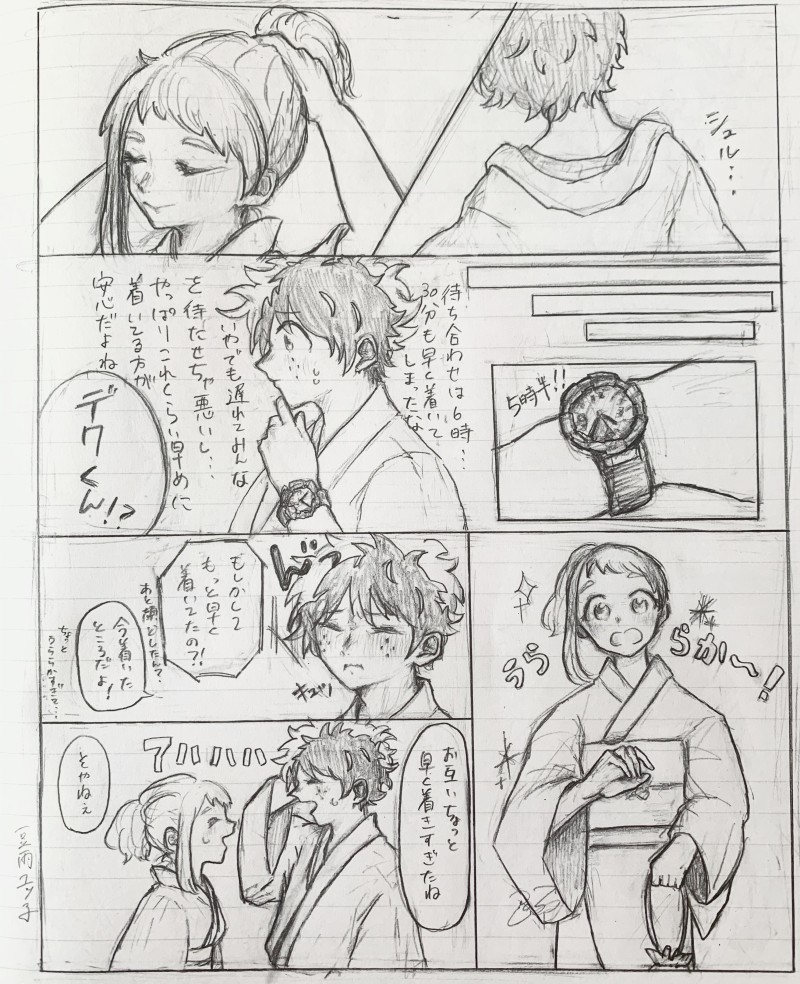 シュル…
待ち合わせは16時…
30分も早く着いて
しまったな
いやでも遅れてみんな
を待たせちゃ悪いし…
やっぱりこれくらい早めに
着いてる方が
安心だよね
5時半!!
デクくん!?
うららか〜!
もしかして
もっと早く
着いてたの?!
今着いた
ところだよ!
ちょっと
うららかすぎて…
キュッ
お互いちょっと
早く着きすぎたね
アハハハハ
そやねぇ